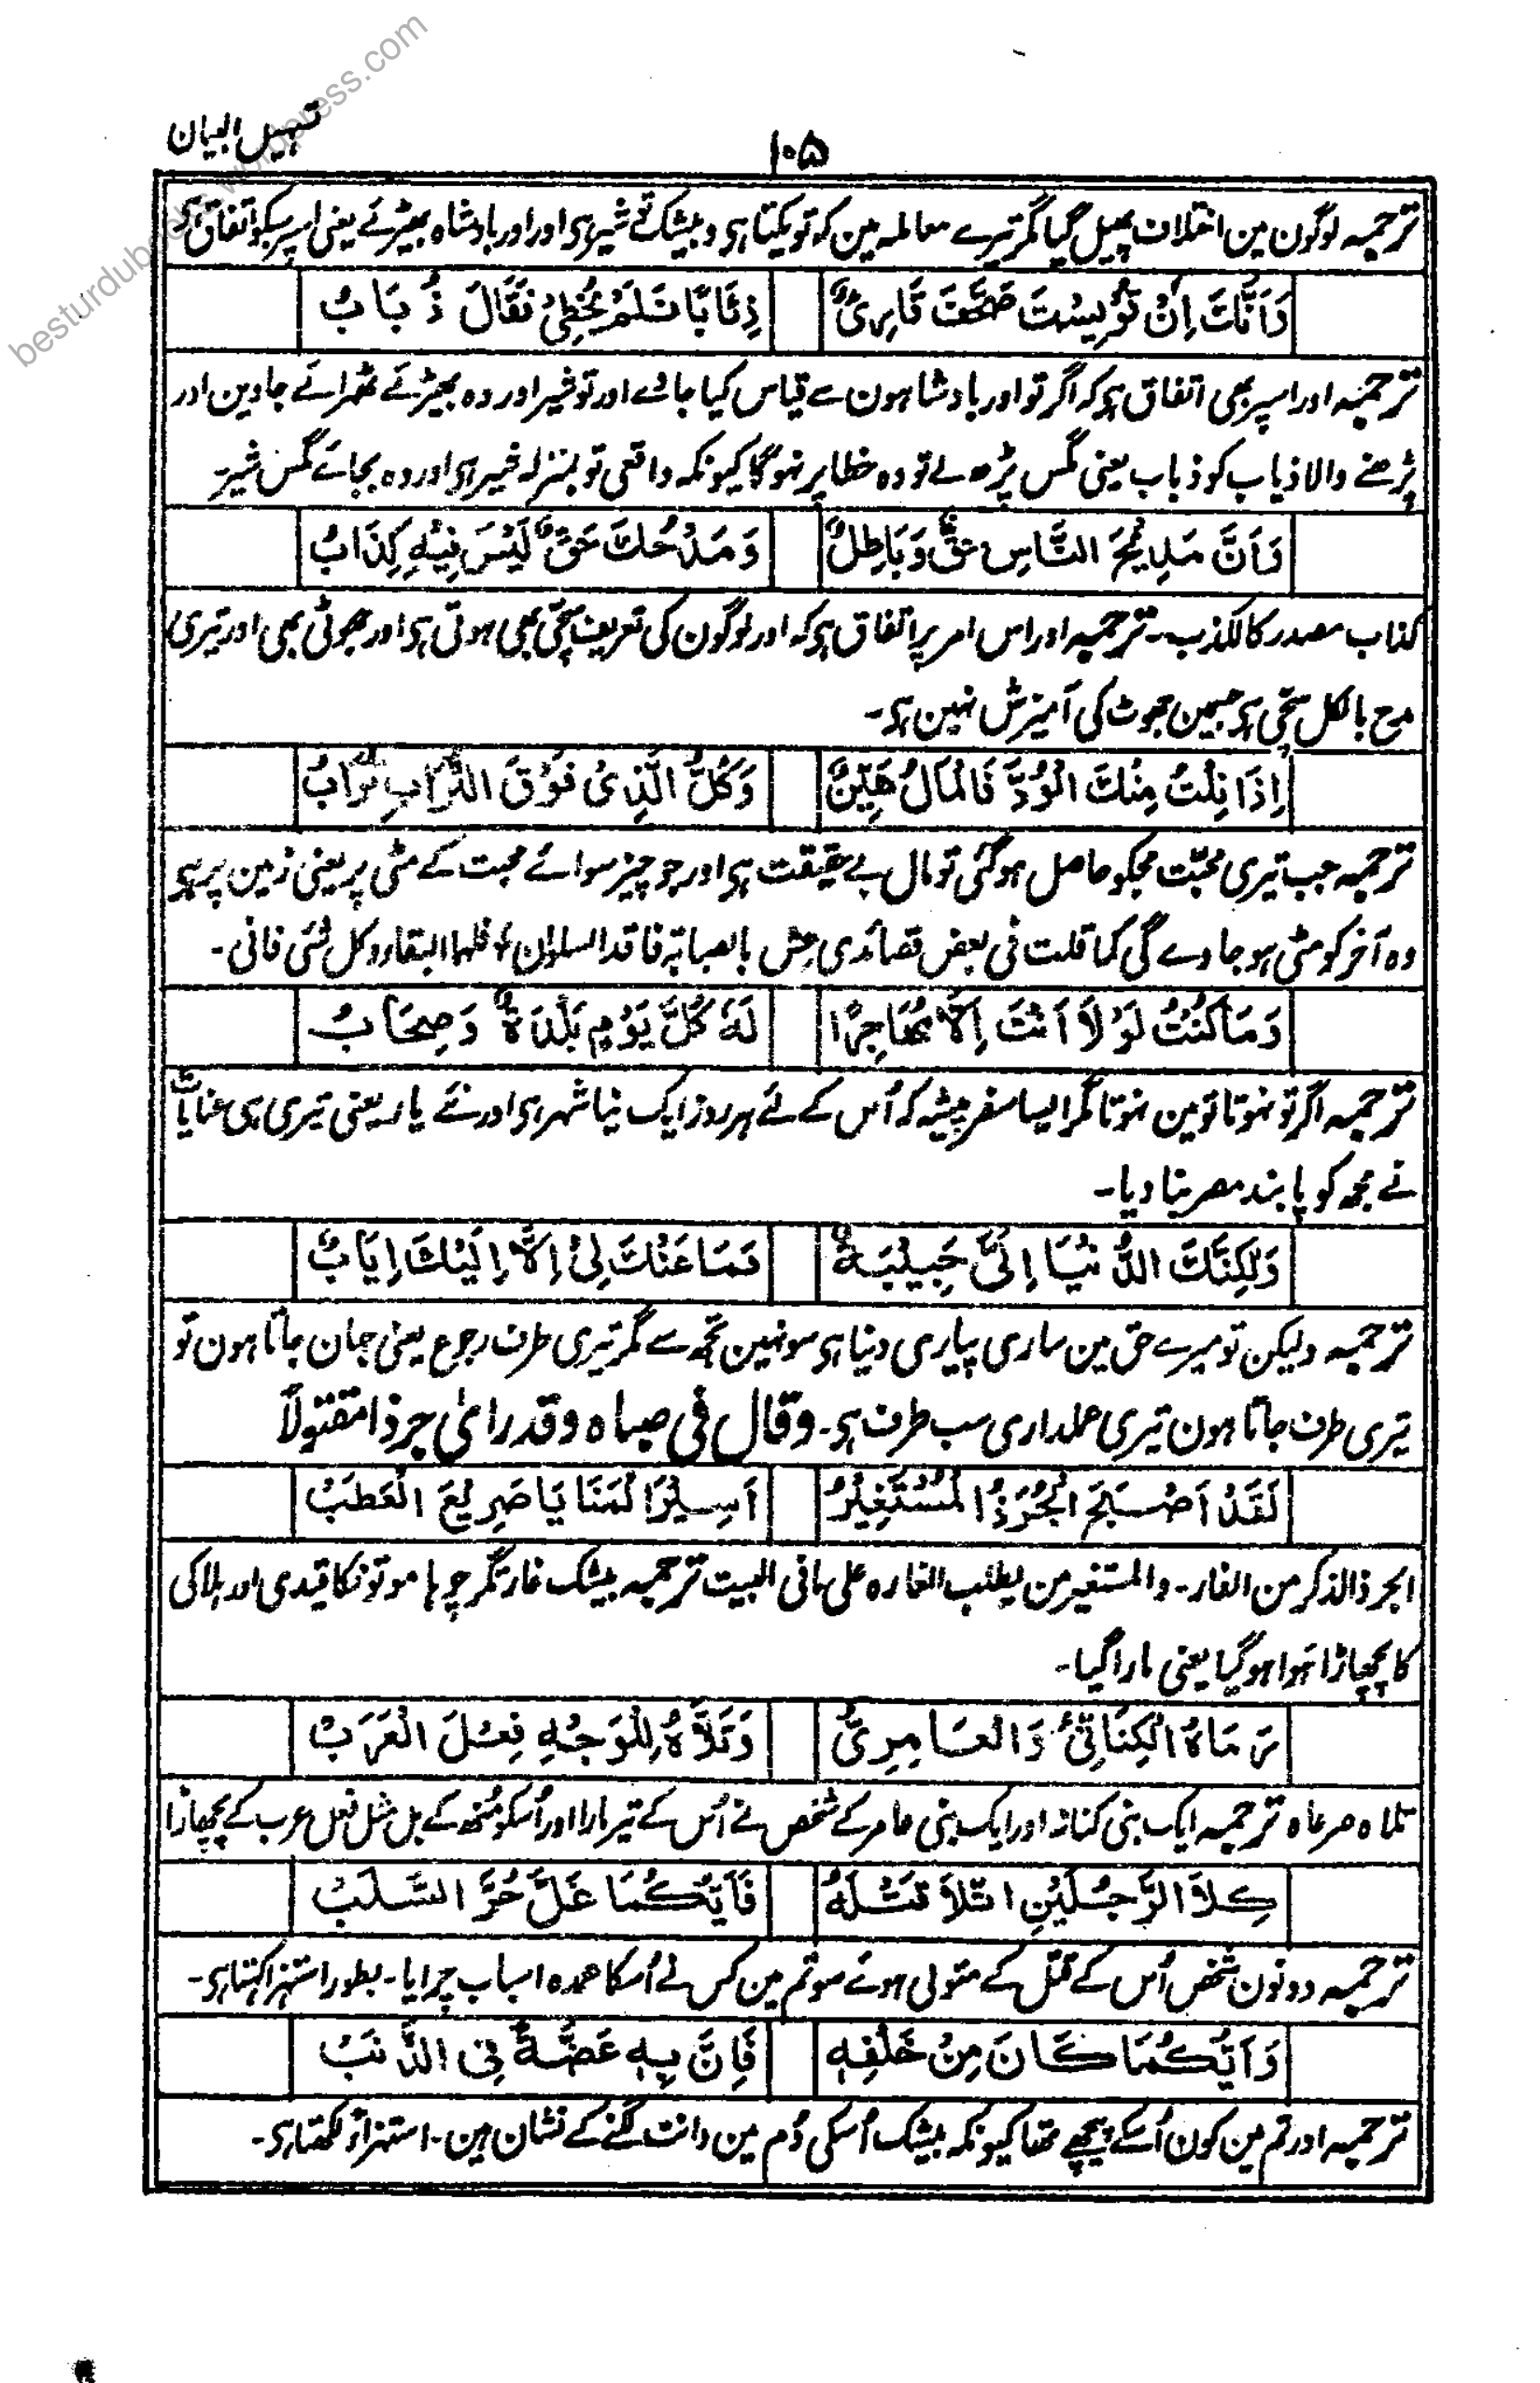 تسہیل البیان
۱۰۵
ترجمہ لوگون مین اختلاف پھیل گیا مگر تیرے معاملہ مین کہ تو یکتا ہی و بیشک تو شیر ہی اور اور بادشاہ بھیڑئے یعنی اسپر سبکو اتفاق ہی
وَاَنَّكَ اِنْ قُوْيِسْتَ صَحَّفَ قَارِئٌ ذِئَابًا فَلَمْ يُخْطِئْ فَقَالَ ذُبَابُ
ترجمہ اور اسپر بھی اتفاق ہی کہ اگر تو اور بادشاہون سے قیاس کیا جاوے اور تو شیر اور وہ بھیڑئے ٹھرائے جاوین اور
پڑھنے والا ذیاب کو ذباب یعنی مگس پڑھ لے تو وہ خطا پر نہوگا کیونکہ واقعی تو بمنزلہ شیر ہی اور وہ بجائے مگس شیر۔
وَاَنَّ مَدِيْحَ النَّاسِ حَقٌّ وَبَاطِلٌ وَمَدْحُكَ حَقٌّ لَيْسَ فِيْهِ كِذَابُ
کذاب مصدر کالکذب۔ ترجمہ اور اس امر پر اتفاق ہی کہ اور لوگون کی تعریف سچی بھی ہوتی ہی اور جھوٹی بھی اور تیری
مدح بالکل سچی ہی جسمین جھوٹ کی آمیزش نہین ہی۔
اِذَا نِلْتُ مِنْكَ الْوُدَّ فَالْمَالُ هَيِّنٌ وَكُلُّ الَّذِىْ فَوْقَ التُّرَابِ تُرَابُ
ترجمہ جب تیری محبّت مجکو حاصل ہوگئی تو مال بے حقیقت ہی اور جو چیز سوائے محبت کے مٹی پر یعنی زمین پر ہی
وہ آخر کو مٹی ہو جاوے گی کما قلت فی بعض قصائدی عِش بالصبابۃ فاقد السلوان فلہا البقاء وکل شئی فانی۔
وَمَا كُنْتُ لَوْلَا اَنْتَ اِلَّا مُهَاجِرًا لَهٗ كُلَّ يَوْمٍ بَلْدَةٌ وَصِحَابُ
ترجمہ اگر تو نہوتا تو مین نہوتا مگر ایسا سفر پیشہ کہ اُس کے لئے ہر روز ایک نیا شہر ہی اور نئے یار یعنی تیری ہی عنایات
نے مجھ کو پابند مصر بنا دیا۔
وَلٰكِنَّكَ الدُّنْيَا اِلَىَّ حَبِيْبَةٌ فَمَا عَنْكَ لِىْ اِلَّا اِلَيْكَ اِيَابُ
ترجمہ ولیکن تو میرے حق مین ساری پیاری دنیا ہی سو نہین تجھ سے مگر تیری طرف رجوع یعنی جہان جاتا ہون تو
تیری طرف جاتا ہون تیری عملداری سب طرف ہی۔ وقال فی صباہ وقد رای جرذا مقتولًا
لَقَدْ اَصْبَحَ الْجُرَذُ الْمُسْتَغِيْرُ اَسِيْرَ الْمَنَايَا صَرِيْعَ الْعَطَبْ
الجرذ الذکر من الفار۔ والمستغیر من یطلب الغارہ علی مافی البیت ترجمہ بیشک غارتگر چوہا موتونکا قیدی اور ہلاکی
کا پچھاڑا ہوا ہوگیا یعنی مارا گیا۔
رَمَاهُ الْكِنَانِىُّ وَالْعَامِرِىُّ وَتَلَّاهُ لِلْوَجْهِ فِعْلَ الْعَرَبْ
تلاہ صرعاہ ترجمہ ایک بنی کنانہ اور ایک بنی عامر کے شخص نے اُس کے تیر مارا اور اُسکو مُنھ کے بل مثل فعل عرب کے پچھاڑا
كِلَا الرَّجُلَيْنِ اتَّلَا قَتْلَهٗ فَاَيُّكُمَا غَلَّ حُرَّ السَّلَبْ
ترجمہ دونون شخص اُس کے قتل کے متولی ہوئے سو تم مین کس نے اُسکا عمدہ اسباب چرایا۔ بطور استہزا کہتا ہی۔
وَاَيُّكُمَا كَانَ مِنْ خَلْفِهٖ فَاِنَّ بِهٖ عَضَّةً فِى الذَّنَبْ
ترجمہ اور تم مین کون اُسکے پیچھے تھا کیونکہ بیشک اُسکی دُم مین دانت لگنے کے نشان ہین۔ استہزاءً کہتا ہی۔